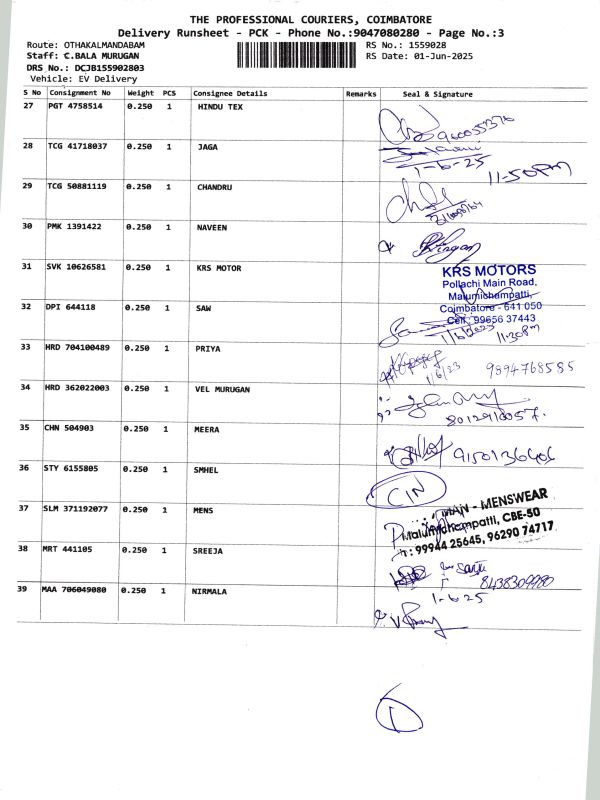 THE PROFESSIONAL COURIERS, COIMBATORE
Delivery Runsheet - PCK - Phone No.:9047080280 - Page No.:3
Route: OTHAKALMANDABAM
RS No.: 1559028
Staff: C.BALA MURUGAN
RS Date: 01-Jun-2025
DRS No.: DCJB155902803
Vehicle: EV Delivery
S No Consignment No Weight PCS Consignee Details Remarks Seal & Signature
27 PGT 4758514 0.250 1 HINDU TEX
28 TCG 41718037 0.250 1 JAGA
1-6-25
11-50PM
29 TCG 50881119 0.250 1 CHANDRU
30 PMK 1391422 0.250 1 NAVEEN
31 SVK 10626581 0.250 1 KRS MOTOR
KRS MOTORS
Pollachi Main Road,
Malumichampatti,
Coimbatore - 641 050
Cell: 99656 37443
32 DPI 644118 0.250 1 SAW
11-30PM
33 HRD 704100489 0.250 1 PRIYA
1/6/23 9894768585
34 HRD 362022003 0.250 1 VEL MURUGAN
8012910057.
35 CHN 504903 0.250 1 MEERA
9150136406
36 STY 6155805 0.250 1 SMHEL
CIN
37 SLM 371192077 0.250 1 MENS
- MENSWEAR
Malumichampatti, CBE-50
: 99944 25645, 96290 74717
38 MRT 441105 0.250 1 SREEJA
8438309980
1-6-25
39 MAA 706049080 0.250 1 NIRMALA